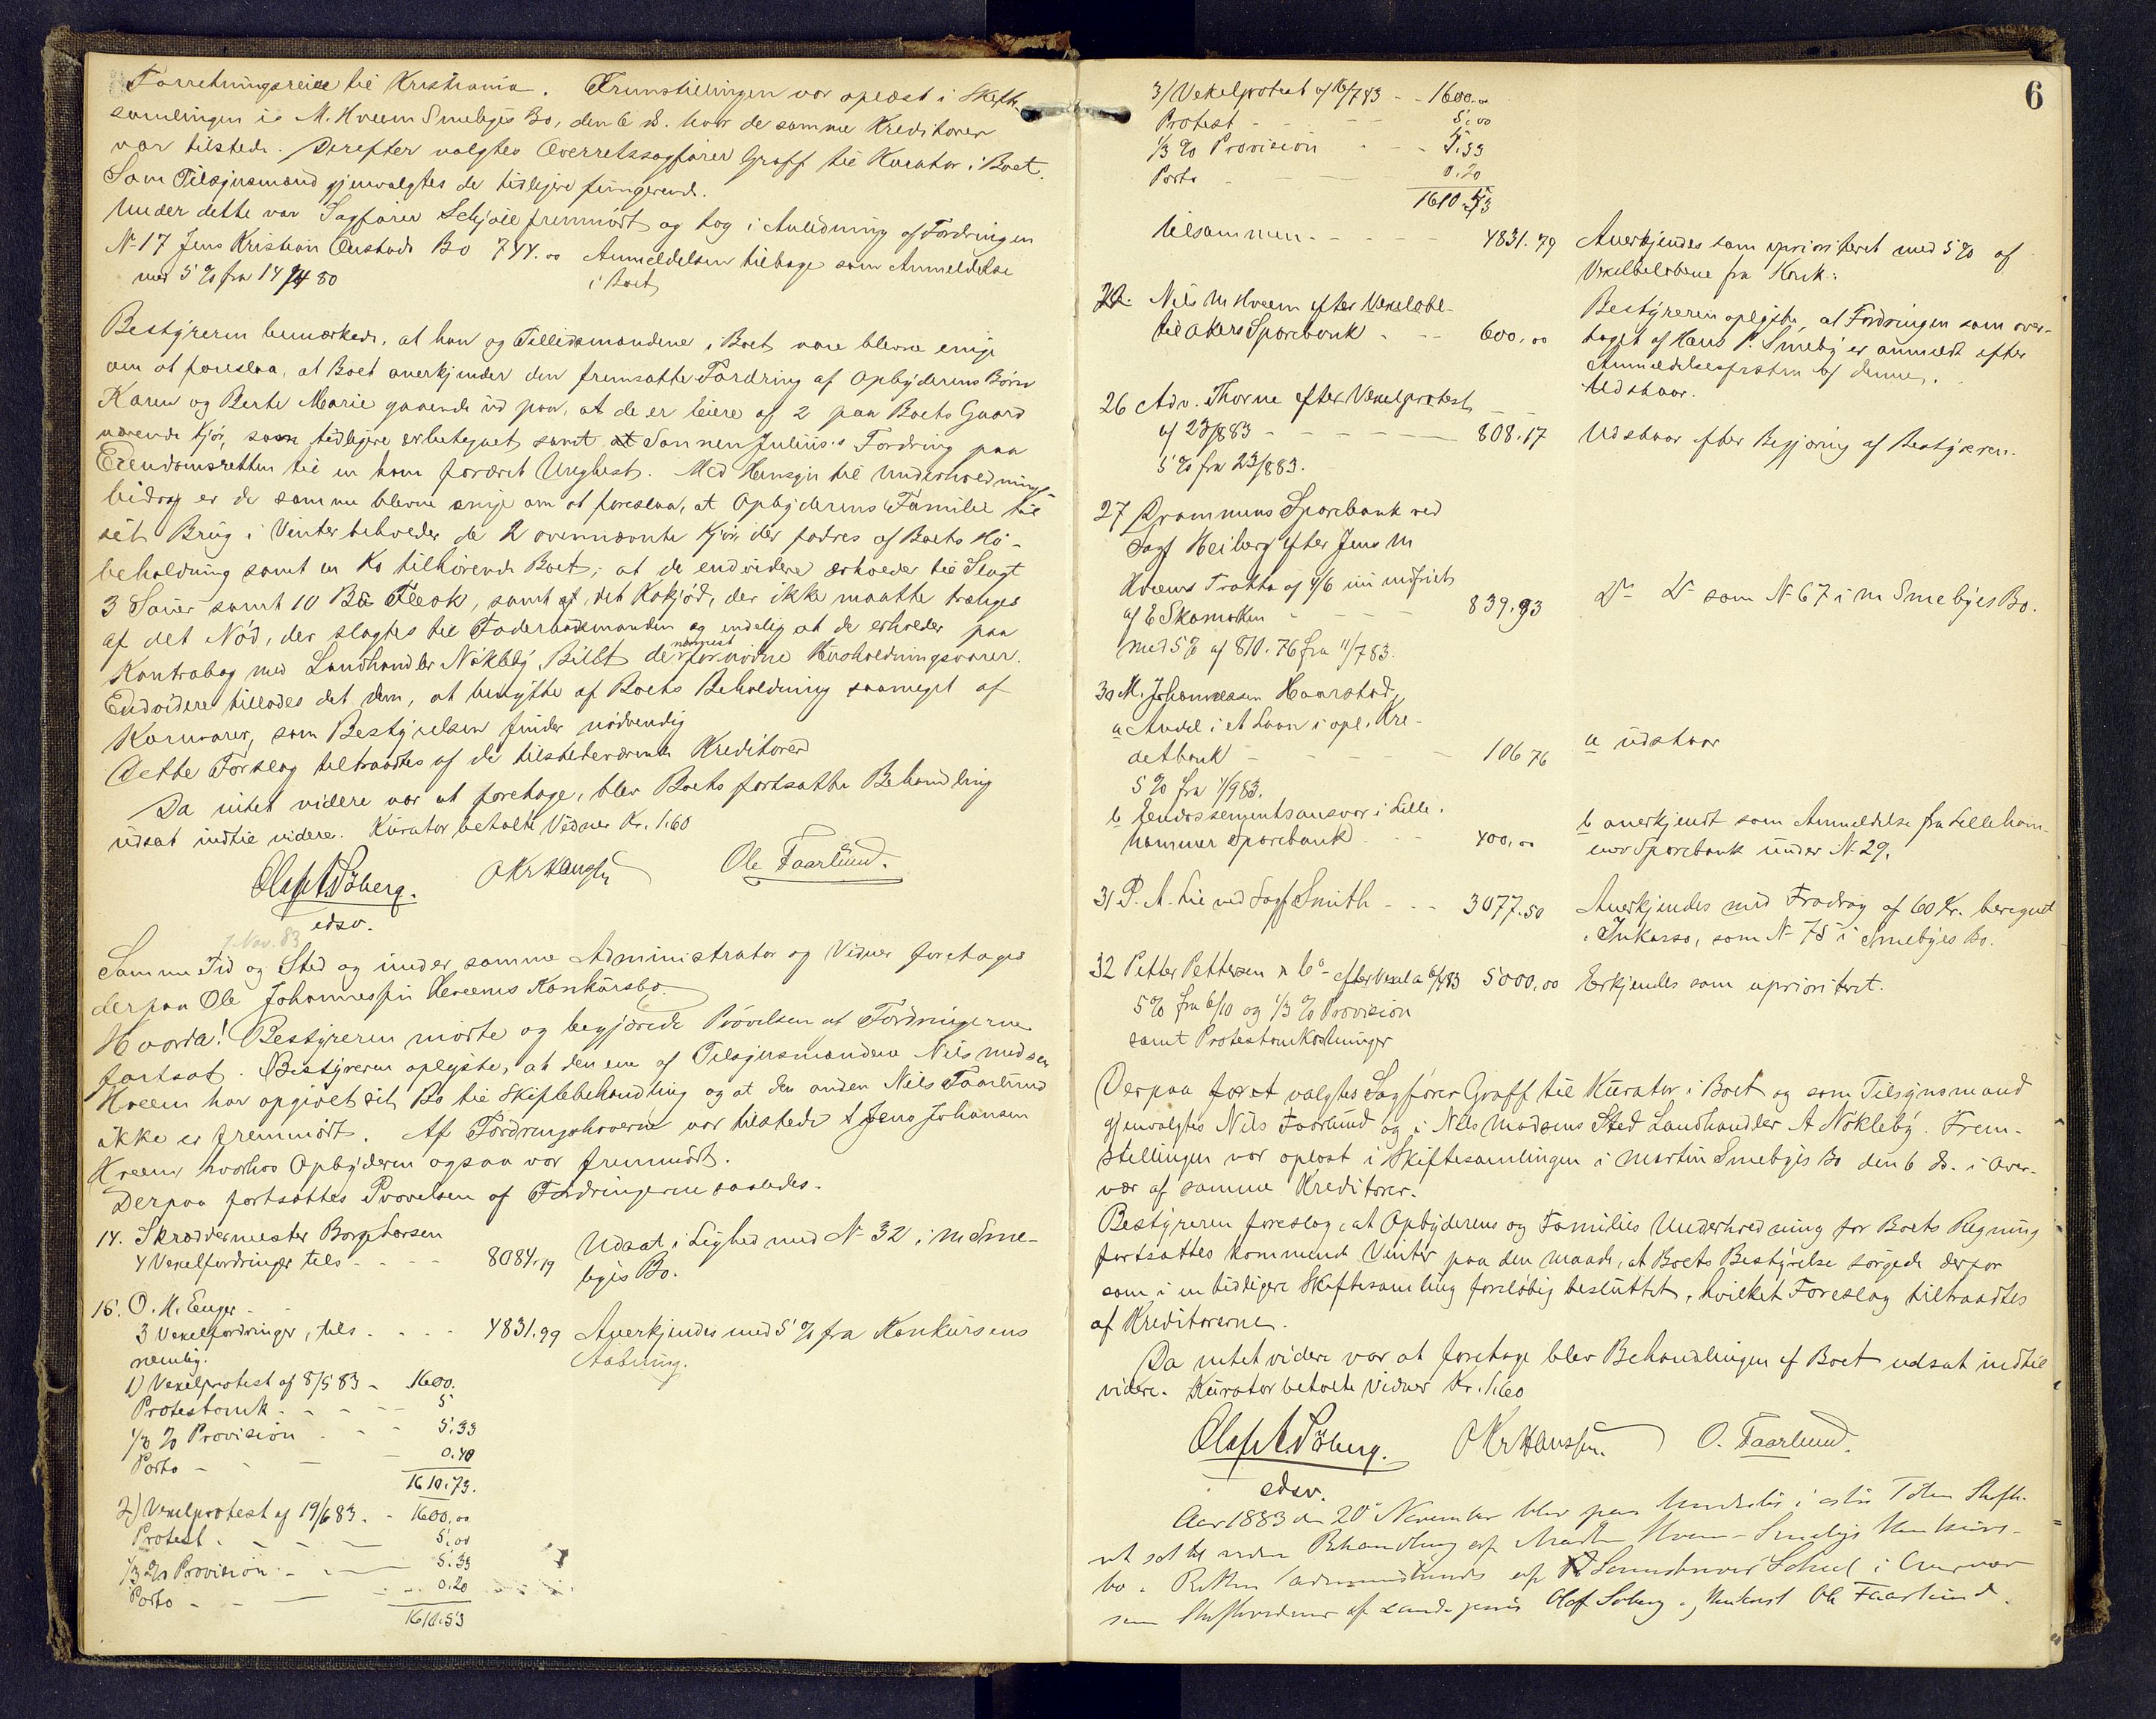 Forretningsreise til Kristiania. Fremstillingen var oplæst i Skifte-
samlingen i M. Hveem Smebyes Bo, den 6 ds. hvor de samme Kreditorer
var tilstede. Derefter valgtes Overretssagfører Graff til Kurator i Boet.
Som Tilsynsmænd gjenvalgtes de tidligere fungerende.
Under dette var Sagfører Schjøll fremmødt og tog i Anledning af Fordringen
No 17 Jens Kristian Bo 744.00 Anmeldelsen tilbage som Anmeldelse
med 5 % fra 14/4 80 i Boet
Bestyreren bemærkede, at han og Tillidsmændene i Boet vare blevne enige
om at foreslaa, at Boet anerkjender den fremsatte Fordring af Opbyderens Børn
Karen og Berte Marie gaaende ud paa, at de er Eiere af 2 paa Boets Gaard
værende Kjør, som tidligere erbetegnet samt at Sønnen Julius's Fordring paa
Eiendomsretten til en ham foræret Unghest. Med Hensyn til Underholdnings-
bidrag er de samme blevne enige om at foreslaa, at Opbyderens Familie til
sit Brug i Vinter beholder de 2 ovennævnte Kjør, der fodres af Boets Hø-
beholdning samt en Ko tilhørende Boet; at de endvidere erholder til Slagt
3 Sauer samt 10 B℔ Flesk, samt af det Kokjød, der ikke maatte trænges
af det Nød, der slagtes til Foderbødsmanden og endelig at de erholder paa
Kontrabog med Landhandler Nøkleby, Billit de nærmest fornødne Husholdningsvarer.
Endvidere tillodes det dem, at benytte af Boets Beholdning saameget af
Kornvarer, som Bestyrelsen finder nødvendig
Dette Forslag tiltraadtes af de tilstedeværende Kreditorer
Da intet videre var at foretage, blev Boets fortsatte Behandling
udsat indtil videre. Kurator betalte Vidner Kr. 1.60
Olaf A Søberg. O Kr Hanssen Ole Faarlund.
edsv.
7 Nov. 83
Samme Tid og Sted og under samme Administrator og Vidner foretages
derpaa Ole Johannessen Hveems Konkursbo.
Hvorda! Bestyreren mødte og begjærede Prøvelsen af Fordringerne
fortsat. Bestyreren oplyste, at den ene af Tilsynsmændene Nils Madsen
Hveem har opgivet sit Bo til Skiftebehandling og at den anden Nils Faarlund
ikke er fremmødt. Af Fordringshaverne var tilstede Jens Johansen
Hveem hvorhos Opbyderen ogsaa var fremmødt.
Derpaa fortsattes Prøvelsen af Fordringerne saaledes.
14. Skræddermester Borge Larsen
4 Vexelfordringer tils - - - - 8084.19 Udsat i Lighed med No 32 i M Sme-
byes Bo.
15. O. H. Enger -
3 Vexelfordringer, tils - - - 4831.79 Anerkjendes med 5 % fra Konkursens
nemlig. Aabning.
1) Vexelprotest af 8/5 83 - 1600.
Protestomk - - - - 5
1/3 % Provision - - - 5.33
Porto - - - 0.40
1610.73.
2) Vexelprotest af 19/6 83. - 1600.00
Protest - - - - 5.00
1/3 % Provision - - - 5.33
Porto - - - 0.20
1610.53
6
3) Vexelprotest af 16/7 83 - - 1600.00
Protest - - - - 5.00
1/3 % Provision - - - 5.33
Porto - - - 0.20
1610.53
tilsammen - - - - 4831.79 Anerkjendes som uprioriteret med 5 % af
Vexelbeløbene fra Konk:
22. Nils M Hveem efter Vexelobl-
til Akers Sparebank - - 600.00 Bestyreren oplyste, at Fordringen som over-
taget af Hans P. Smeby er anmeldt efter
Anmeldelsesfristen af denne.
Udstaar.
26 Adv. Thorne efter Vexelprotest
af 23/8 83 - - - - - 808.17 Udstaar efter Begjæring af Bestyreren.
5 % fra 23/8 83.
27 Drammens Sparebank ved
Sagf Heiberg efter Jens M
Hveems Tratte af 4/6 indfriet
af E Skamarken - - - 839.93 Do Do som No 67 i M Smebyes Bo.
med 5 % af 810.76 fra 11/7 83.
30 M. Johannessen Haarstad,
a Andel i et Laan i opl. Kre-
ditbank - - - - - 106 76 a udstaar
5 % fra 1/9 83.
b Endossementsansvar i Lille-
hammer Sparebank - - 400.00 b anerkjendt som Anmeldelse fra Lilleham-
mer Sparebank under No 29.
31 P. A. Lie ved Sagf Smith - - - 3077.50 Anerkjendes med Fradrag af 60 Kr. beregnet
i Inkasso, som No 75 i Smebyes Bo.
32 Petter Pettersen & Co - efter Vexel a 6/7 83 5000.00 Erkjendes som uprioriteret.
5 % fra 6/10 og 1/3 % Provision
samt Protestomkostninger
Derpaa foret valgtes Sagfører Graff til Kurator i Boet og som Tilsynsmænd
gjenvalgtes Nils Faarlund og i Nils Madsens Sted Landhandler A Nøkleby. Frem-
stillingen var oplæst i Skiftesamlingen i Martin Smebyes Bo den 6 ds. i Over-
vær af samme Kreditorer.
Bestyreren foreslog, at Opbyderens og Families Underholdning for Boets Regning
fortsattes kommende Vinter paa den Maade, at Boets Bestyrelse sørgede derfor
som i en tidligere Skiftesamling foreløbig besluttet, hvilket Foreslag tiltraadtes
af Kreditorerne.
Da intet videre var at foretage blev Behandlingen af Boet udsat indtil
videre. Kurator betalte Vidner Kr. 1.60
Olaf A Søberg. O Kr Hanssen O. Faarlund.
edsv.
Aar 1883 den 20 November blev paa i Østre Toten Skifte-
ret sat til videre Behandling af Martin Hveem-Smebys Konkurs-
bo. Retten administreredes af Sorenskriver Scheel i Overvær
som Skiftevidner af Olaf Søberg og Ole Faarlund.